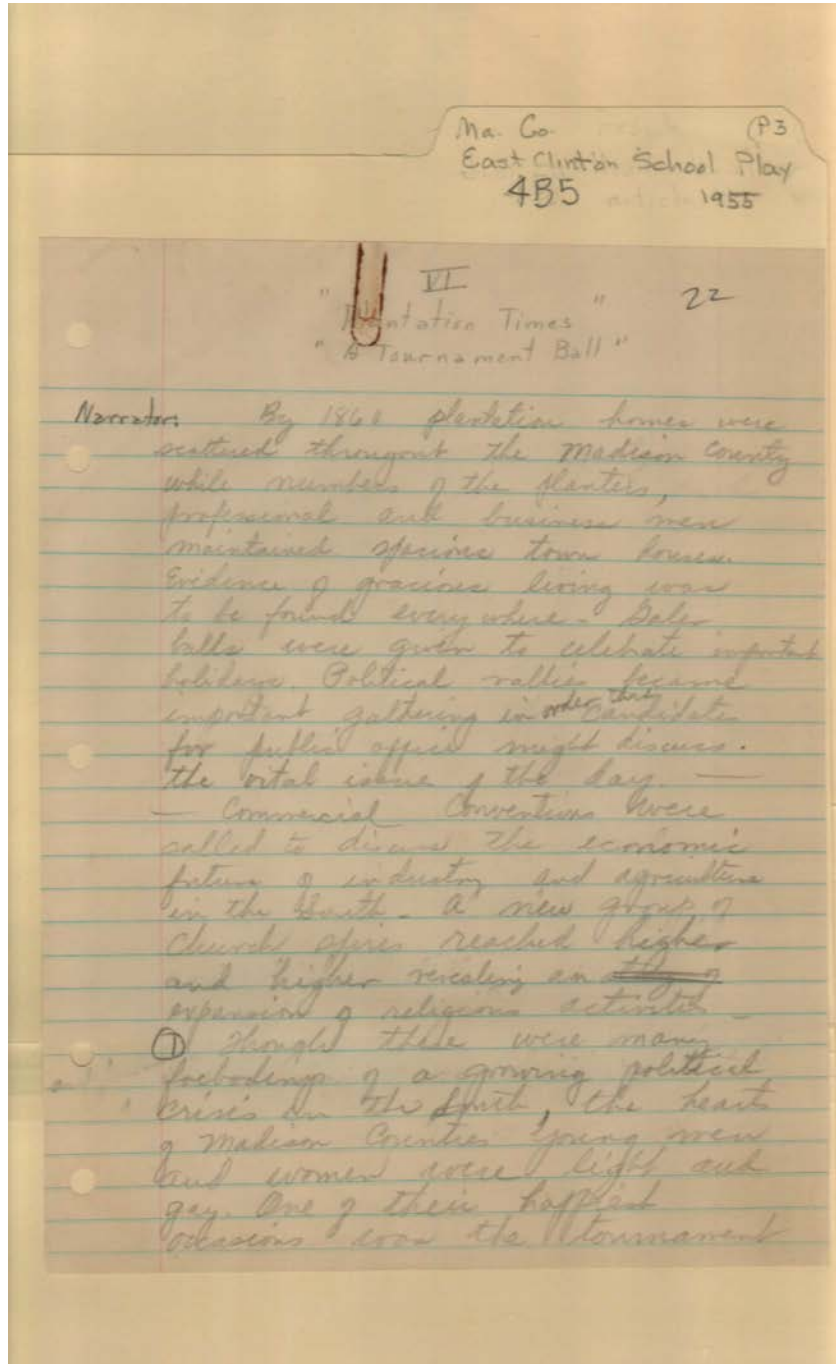 Ma. Co. (P3
East Clinton School Play
4B5 1955
VI
22
"Plantation Times"
"A Tournament Ball"
Narrator: By 1860 plantation homes were
scattured througout the Madison County
while numbers of the planters,
professional and business men
maintained spacious town houses.
Evidence of gracious living was
to be found everywhere - Gala
balls were given to celebrate important
holidays. Political rallies became
important gathering in order that candidates
for public office might discuss.
the vital issue of the day. —
— Commercial Conventions were
called to discuss the economic
future of industry and agriculture
in the South - A new group of
Church spires reached higher
and higher revealing an
expansion of religious activities -
① Though there were many
forbodings of a growing political
crisis in the South, the hearts
of Madison Counties young men
and women were light and
gay. One of their happiest
occasions was the tournament